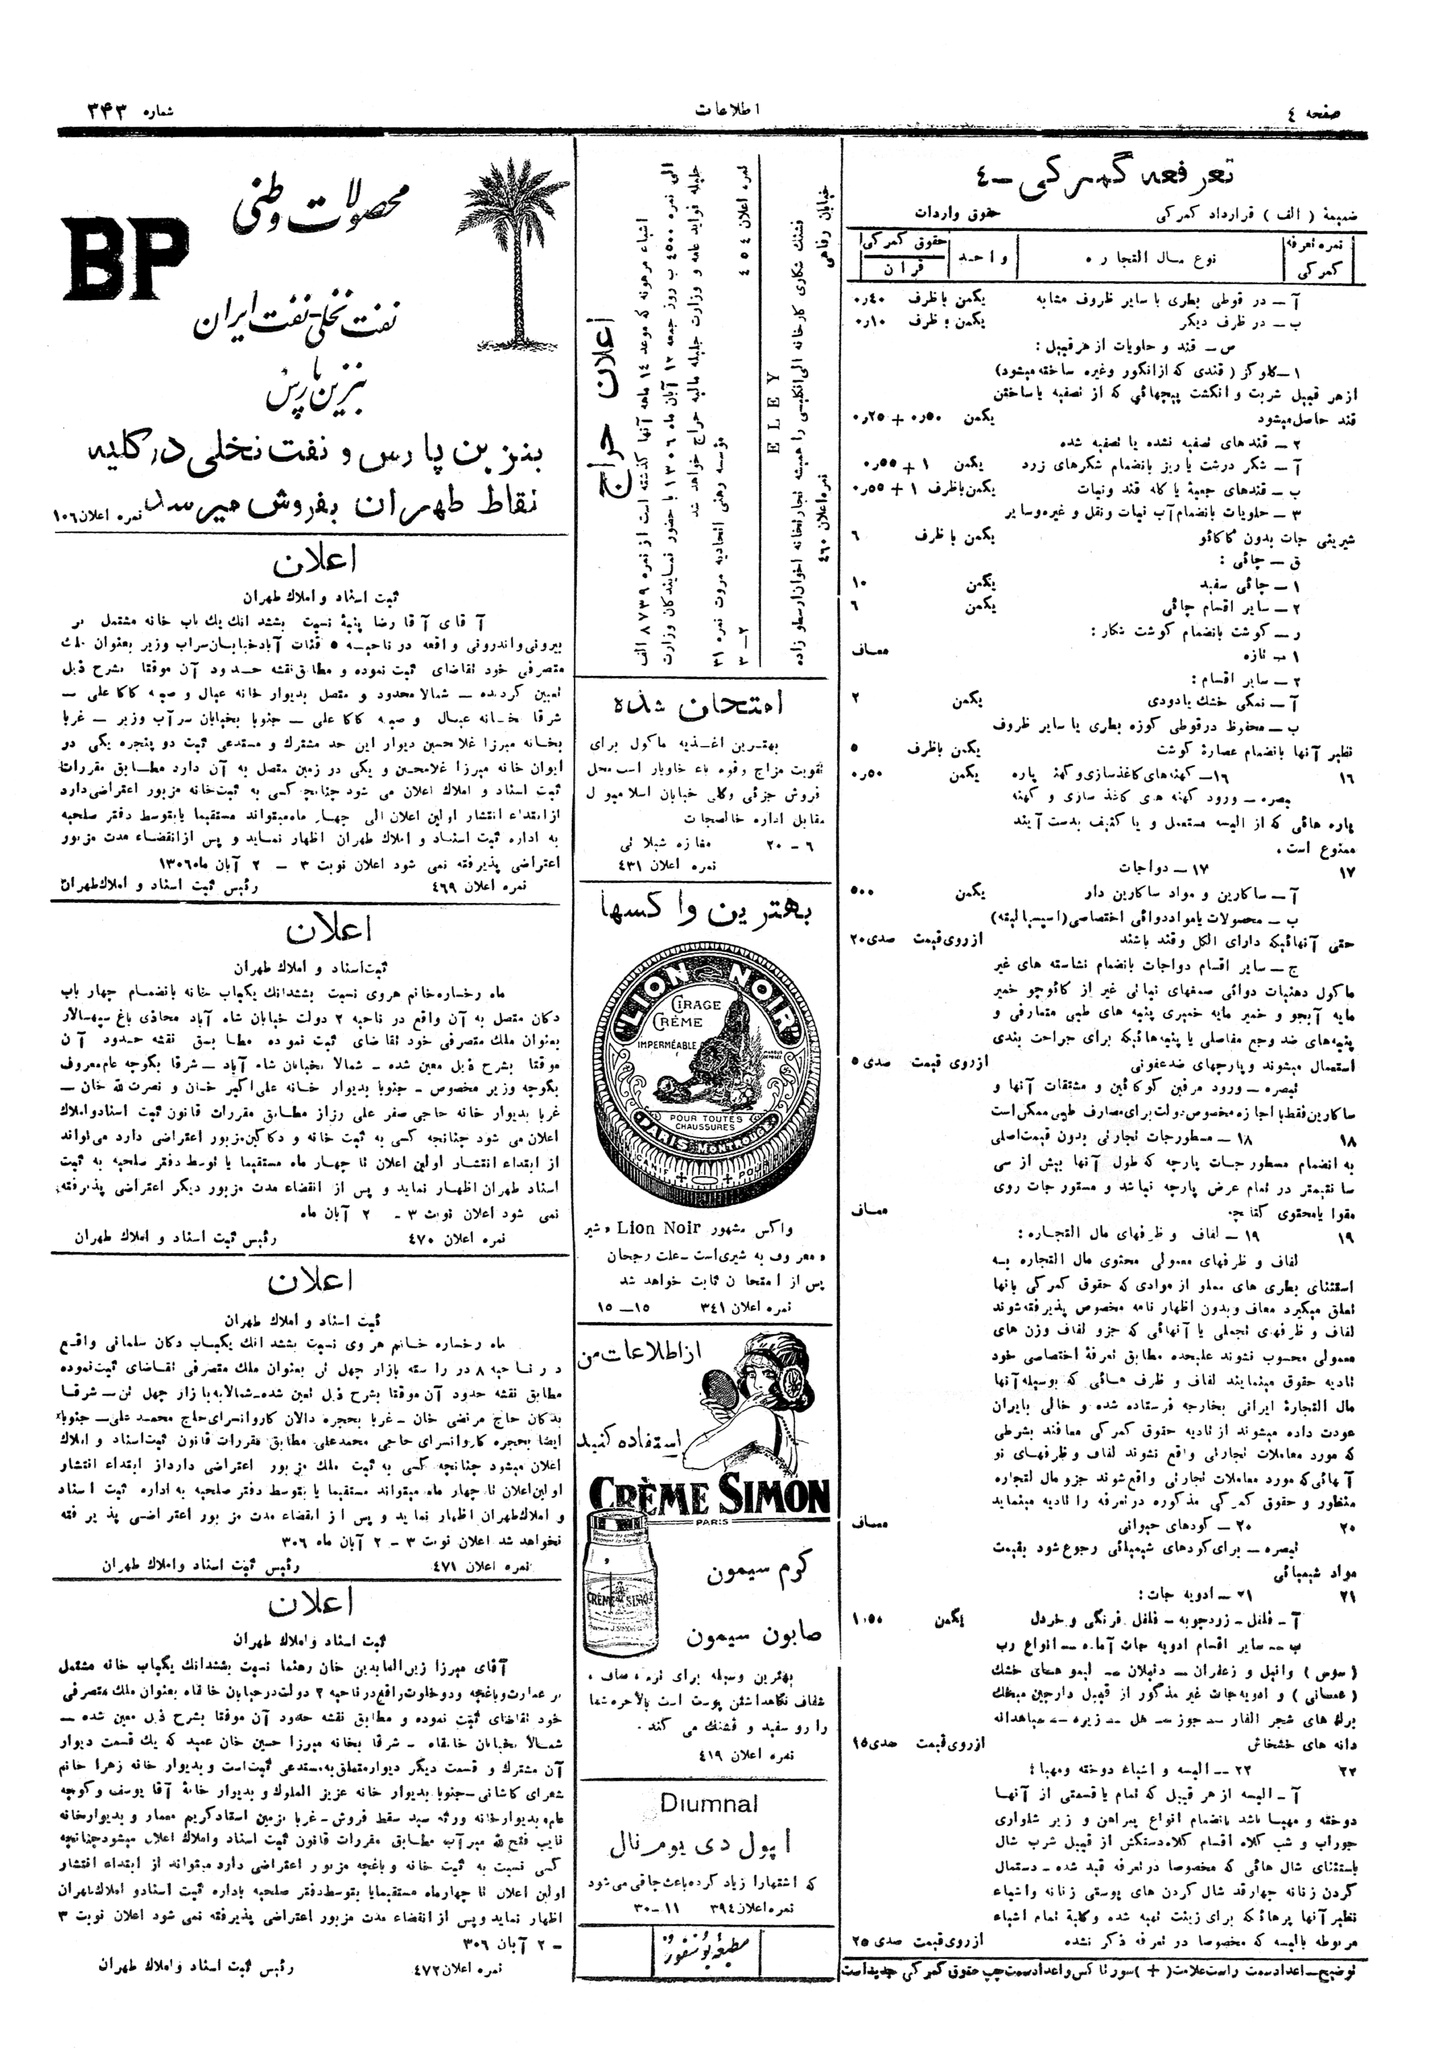 صفحه ٤
اطلاعات
شماره ۳۴۳
تعرفه گمرکی - ٤
ضمیمهٔ ( الف ) قرارداد گمرکی حقوق واردات
نمره تعرفه گمرکی
نوع مال التجاره
واحد
حقوق گمرکی
قران
آ – در قوطی بطری با سایر ظروف مشابه یکمن با ظرف ٤٠ر٠
ب – در ظرف دیگر یکمن و ظرف ١٠ر٠
ص – قند و حلویات از هر قبیل :
١ – گلوگز ( قندی که از انگور وغیره ساخته میشود)
از هر قبیل شربت و انگشت پیچهائی که از تصفیه یا ساختن
قند حاصل میشود یکمن ٥٠ر٠ + ٢٥ر٠
٢ – قند های تصفیه نشده یا تصفیه شده
آ – شکر درشت یا ریز بانضمام شکرهای زرد یکمن ١ + ٥٥ر٠
ب – قندهای حبهٔ یا کله قند ونبات یکمن باظرف ١ + ٥٥ر٠
٣ – حلویات بانضمام آب نبات ونقل و غیره وسایر
شیرینی جات بدون کاکائو یکمن با ظرف ٦
ق – چائی :
١ – چائی سفید یکمن ١٠
٢ – سایر اقسام چائی یکمن ٦
ر – گوشت بانضمام گوشت شکار :
١ – تازه معاف
٢ – سایر اقسام :
آ – نمکی خشک یادودی یکمن ٢
ب – محفوظ درقوطی کوزه بطری یا سایر ظروف
نظیر آنها بانضمام عصارهٔ گوشت یکمن باظرف ٥
١٦ ١٦ – کهنه های کاغذسازی و کهنه پاره یکمن ٥٠ر٠
تبصره – ورود کهنه های کاغذ سازی و کهنه
پاره هائی که از البسه مستعمل و یا کثیف بدست آیند
ممنوع است .
١٧ ١٧ – دواجات
آ – ساکارین و مواد ساکارین دار یکمن ٥٠٠
ب – محصولات یامواد دوائی اختصاصی (اسپسیالیته)
حتی آنهائیکه دارای الکل وقند باشند ازروی قیمت صدی ٢٠
ج – سایر اقسام دواجات بانضمام نشاسته های غیر
ماکول دهنیات دوائی صمغهای نباتی غیر از کائوچو خمیر
مایه آبجو و خمیر مایه خمیری پنبه های طبی متعارفی و
پنبه های ضد وجع مفاصلی یا پنبه هائیکه برای جراحت بندی
استعمال میشوند و پارچهای ضدعفونی ازروی قیمت صدی ٥
تبصره – ورود مرفین کوکائین و مشتقات آنها و
ساکارین فقط با اجازه مخصوص دولت برای مصارف طبی ممکن است
١٨ ١٨ – مسطورجات تجارتی بدون قیمت اصلی
به انضمام مسطور جات پارچه که طول آنها بیش از سی
سانتیمتر در تمام عرض پارچه نباشد و مستور جات روی
مقوا یا محتوی کتابچه معاف
١٩ ١٩ – لفاف و ظرفهای مال التجاره :
لفاف و ظرفهای معمولی محتوی مال التجاره به
استثنای بطری های مملو از موادی که حقوق گمرکی بانها
تعلق میگیرد معاف وبدون اظهار نامه مخصوص پذیرفته شوند
لفاف و ظرفهای تجملی یا آنهائی که جزو لفاف وزن های
معمولی محسوب نشوند علیحده مطابق تعرفهٔ اختصاصی خود
تادیه حقوق مینمایند لفاف و ظرف هائی که بوسیله آنها
مال التجارهٔ ایرانی بخارجه فرستاده شده و خالی بایران
عودت داده میشوند از تادیه حقوق گمرکی معافند بشرطی
که مورد معاملات تجارتی واقع نشوند لفاف و ظرفهای نو
آنهائی که مورد معاملات تجارتی واقع شوند جزو مال لتجاره
منظور و حقوق گمرکی مذکوره در تعرفه را تادیه مینماید
٢٠ ٢٠ – کودهای حیوانی معاف
تبصره – برای کودهای شیمیائی رجوع شود بقیمت
مواد شیمیائی
٢١ ٢١ – ادویه جات :
آ – فلفل – زردچوبه – فلفل فرنگی و خردل یکمن
ب – سایر اقسام ادویه جات آماده – انواع رب
(سوس) وانیل و زعفران – دنبلان – لیمو های خشک
(عمانی) و ادویه جات غیر مذکور از قبیل دارچین میخک
برک های شجر الغار – جوز – هل – زیره – سیاهدانه
دانه های خشخاش ازروی قیمت صدی ١٥
٢٢ ٢٢ – البسه و اشیاء دوخته ومهیا :
آ – البسه از هر قبیل که تمام یا قسمتی از آنها
دوخته و مهیا باشد بانضمام انواع پیراهن و زیر شلواری
جوراب و شب کلاه اقسام کلاه دستکش از قبیل شرب شال
باستثنای شال هائی که مخصوصا در تعرفه قید شده – دستمال
گردن زنانه چهارقد شال گردن های پوستی زنانه واشیاء
نظیر آنها پرهائکه برای زینت تهیه شده وکلیهٔ تمام اشیاء
مربوطه بالبسه که مخصوصا در تعرفه ذکر نشده ازروی قیمت صدی ٢٥
توضیح – اعداد سمت راست علامت ( + ) سورتاکس واعداد سمت چپ حقوق گمرکی جدید است
خیابان رفاهی
فشنک شکاری کارخانه الی انگلیسی را همیشه تجارتخانه اخوان ارسطو زاده
ELEY
نمره اعلان ٤٦٠
اعلان حراج
اشیاء مرهونه که موعد ١٤ ماهه آنها گذشته است از نمره ٨٧٣٩ الف
الی نمره ٤٥٠٠ ب روز جمعه ١٢ آبان ماه ١٣٠٦ با حضور نمایندگان وزارت
جلیله فواید عامه و وزارت جلیله مالیه حراج خواهد شد
مؤسسه رهنی اتحادیه مروت نمره ٣١
نمره اعلان ٤٥٤ ٣–٢
امتحان شده
بهترین اغذیه ماکول برای
تقویت مزاج وقوه باء خاویار است محل
فروش جزئی وکلی خیابان اسلامبول
مقابل اداره خالصجات
٢٠ – ٦ مغازه شیلاتی
نمره اعلان ٤٣١
بهترین واکسها
"LION NOIR"
CIRAGE
CRÈME
IMPERMÉABLE
POUR TOUTES
CHAUSSURES
PARIS MONTROUGE
واکس مشهور Lion Noir و شیر
و معروف به شیری است – علت رجحان
پس از امتحان ثابت خواهد شد
نمره اعلان ٣٤١ ١٥–١٥
از اطلاعات من
استفاده کنید
CRÈME SIMON
PARIS
CRÈME SIMON
کرم سیمون
صابون سیمون
بهترین وسیله برای نرم، صاف،
شفاف نگاهداشتن پوست است بالاخره شما
را رو سفید و قشنک می کند.
نمره اعلان ٤١٩
Diumnal
اپول دی یومرنال
که اشتها را زیاد کرده باعث چاقی می شود
نمره اعلان ٣٩٤ ٣٠–١١
مطبعه بوسفور
محصولات وطنی
BP
نفت نخلی - نفت ایران
بنزین پارس
بنزین پارس و نفت نخلی در کلیه
نقاط طهران بفروش میرسد نمره اعلان ١٠٦
اعلان
ثبت اسناد و املاک طهران
آقای آقا رضا پنبهٔ نسبت بششدانک یک باب خانه مشتمل بر
بیرونی واندرونی واقعه در ناحیه ٥ قنات آباد خیابان سراب وزیر بعنوان ملک
متصرفی خود تقاضای ثبت نموده و مطابق نقشه حدود آن موقتا بشرح ذیل
تعیین گردیده – شمالا محدود و متصل بدیوار خانه عیال و صبیه کاکا علی –
شرقا خانه عیال و صبیه کاکا علی – جنوبا بخیابان سر آب وزیر – غربا
بخانه میرزا غلامحسین دیوار این حد مشترک و مستدعی ثبت دو پنجره یکی در
ایوان خانه میرزا غلامحسین و یکی در زمین متصل به آن دارد مطابق مقررات
ثبت اسناد و املاک اعلان می شود چنانچه کسی به ثبت خانه مزبور اعتراضی دارد
از ابتداء انتشار اولین اعلان الی چهار ماه میتواند مستقیما یا بتوسط دفتر صلحیه
به اداره ثبت اسناد و املاک طهران اظهار نماید و پس از انقضاء مدت مزبور
اعتراضی پذیرفته نمی شود اعلان نوبت ٣ – ٢ آبان ماه ١٣٠٦
نمره اعلان ٤٦٩ رئیس ثبت اسناد و املاک طهران
اعلان
ثبت اسناد و املاک طهران
ماه رخساره خانم هروی نسبت بششدانک یکباب خانه بانضمام چهار باب
دکان متصل به آن واقع در ناحیه ٢ دولت خیابان شاه آباد محاذی باغ سپهسالار
بعنوان ملک متصرفی خود تقاضای ثبت نموده مطابق نقشه حدود آن
موقتا بشرح ذیل معین شده – شمالا بخیابان شاه آباد – شرقا بکوچه عام معروف
بکوچه وزیر مخصوص – جنوبا بدیوار خانه علی اکبر خان و نصرت الله خان –
غربا بدیوار خانه حاجی صفر علی رزاز مطابق مقررات قانون ثبت اسناد و املاک
اعلان می شود چنانچه کسی به ثبت خانه و دکاکین مزبور اعتراضی دارد می تواند
از ابتداء انتشار اولین اعلان تا چهار ماه مستقیما یا توسط دفتر صلحیه به ثبت
اسناد طهران اظهار نماید و پس از انقضاء مدت مزبور دیگر اعتراضی پذیرفته
نمی شود اعلان نوبت ٣ – ٢ آبان ماه
نمره اعلان ٤٧٠ رئیس ثبت اسناد و املاک طهران
اعلان
ثبت اسناد و املاک طهران
ماه رخساره خانم هروی نسبت بششدانک یکباب دکان سلمانی واقع
در ناحیه ٨ در راسته بازار چهل تن بعنوان ملک متصرفی تقاضای ثبت نموده
مطابق نقشه حدود آن موقتا بشرح ذیل تعین شده – شمالا به بازار چهل تن – شرقا
بدکان حاج مرتضی خان – غربا بحجره دالان کاروانسرای حاج محمد علی – جنوبا
ایضا بحجره کاروانسرای حاجی محمدعلی مطابق مقررات قانون ثبت اسناد و املاک
اعلان میشود چنانچه کسی به ثبت ملک مزبور اعتراضی دارد از ابتداء انتشار
اولین اعلان تا چهار ماه میتواند مستقیما یا بتوسط دفتر صلحیه به اداره ثبت اسناد
و املاک طهران اظهار نماید و پس از انقضاء مدت مزبور اعتراضی پذیرفته
نخواهد شد اعلان نوبت ٣ – ٢ آبان ماه ٣٠٦
نمره اعلان ٤٧١ رئیس ثبت اسناد و املاک طهران
اعلان
ثبت اسناد و املاک طهران
آقای میرزا زین العابدین خان رهنما نسبت بششدانک یکباب خانه مشتمل
بر عمارت و باغچه و دو خلوت واقع در ناحیه ٢ دولت در خیابان خانقاه بعنوان ملک متصرفی
خود تقاضای ثبت نموده و مطابق نقشه حدود آن موقتا بشرح ذیل معین شده –
شمالاً بخیابان خانقاه – شرقا بخانه میرزا حسین خان عمید که یک قسمت دیوار
آن مشترک و قسمت دیگر دیوار متعلق به مستدعی ثبت است و بدیوار خانه زهرا خانم
شعرای کاشانی – جنوبا بدیوار خانه عزیز الملوک و بدیوار خانهٔ آقا یوسف و کوچه
عام و بدیوار خانه ورثه سید سقط فروش – غربا بزمین استاد کریم معمار و بدیوار خانه
نایب فتح الله میرآب مطابق مقررات قانون ثبت اسناد واملاک اعلان میشود چنانچه
کسی نسبت به ثبت خانه و باغچه مزبور اعتراضی دارد میتواند از ابتداء انتشار
اولین اعلان تا چهارماه مستقیما یا بتوسط دفتر صلحیه باداره ثبت اسناد و املاک طهران
اظهار نماید و پس از انقضاء مدت مزبور اعتراضی پذیرفته نمی شود اعلان نوبت ٣
– ٢ آبان ٣٠٦
نمره اعلان ٤٧٢ رئیس ثبت اسناد و املاک طهران